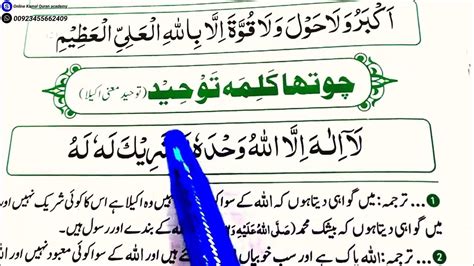 Online Kamal Quran academy
00923455662409
اَكْبَرُ وَلَا حَوْلَ وَلَا قُوَّةَ اِلَّا بِاللّٰهِ الْعَلِيِّ الْعَظِيْمِ
چوتھا کَلِمَہ تَوْحِیْد (توحید معنی اکیلا)
لَآ اِلٰهَ اِلَّا اللّٰهُ وَحْدَهٗ شَرِيْكَ لَهٗ لَهُ
1 ... ترجمہ: میں گواہی دیتا ہوں کہ اللہ کے سوا کوئی نہیں وہ اکیلا ہے اس کا کوئی شریک نہیں اور
میں گواہی دیتا ہوں کہ بیشک محمد (صَلَّی اللہُ عَلَیْہِ اللہ کے بندے اور رسول ہیں۔
2 ... ترجمہ: اللہ پاک ہے اور سب خوبیاں اللہ کے سوا کوئی معبود نہیں اور اللہ